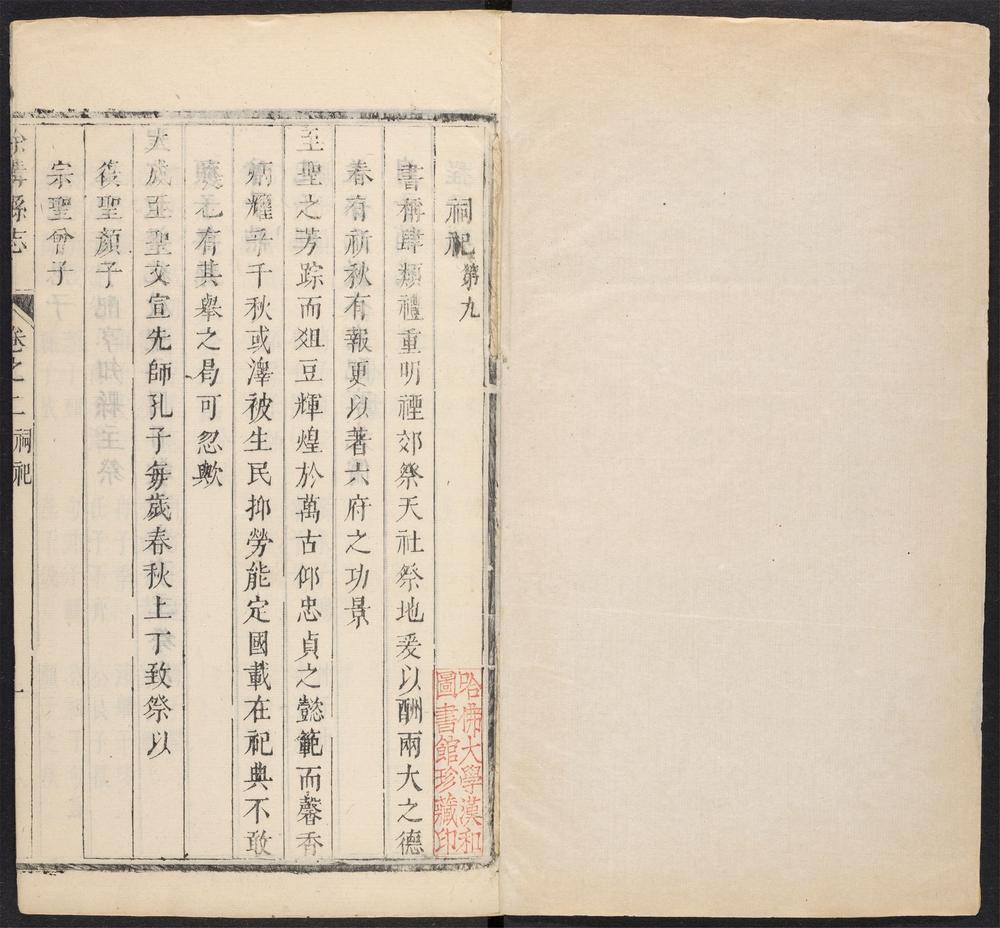 祠祀第九
書稱肆類禮重明禋郊祭天社祭地爰以酬兩大之德
春有祈秋有報更以著六府之功景
至聖之芳踪而俎豆輝煌於萬古仰忠貞之懿範而馨香
炳耀乎千秋或澤被生民抑勞能定國載在祀典不敢
褻也有其舉之曷可忽歟
大成至聖文宣先師孔子每歲春秋上丁致祭以
復聖顏子
宗聖曾子
縣志 卷之二 祠祀 一
哈佛大學漢和
圖書館珍藏印